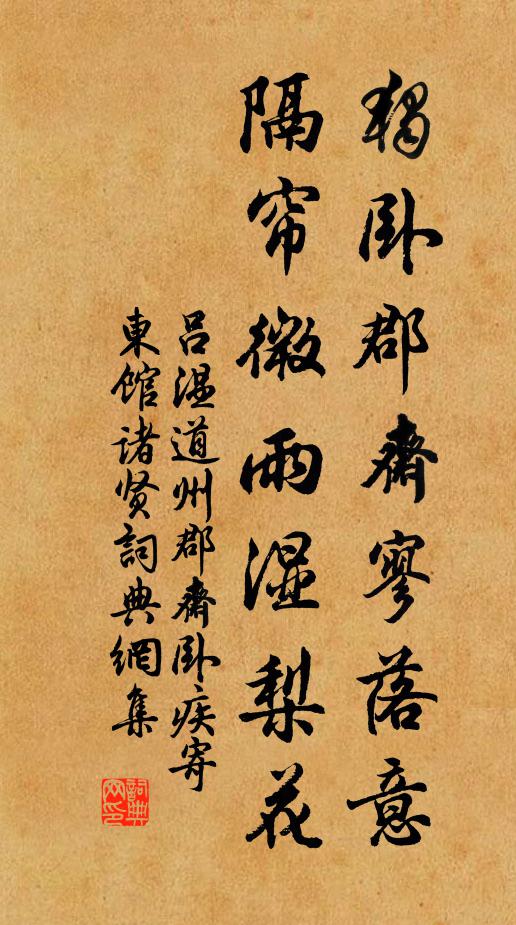 獨卧郡齋寥落意
隔帘微雨湿梨花
吕温道州郡齋卧疾寄
東馆诸贤詞典網集
詞典
网印